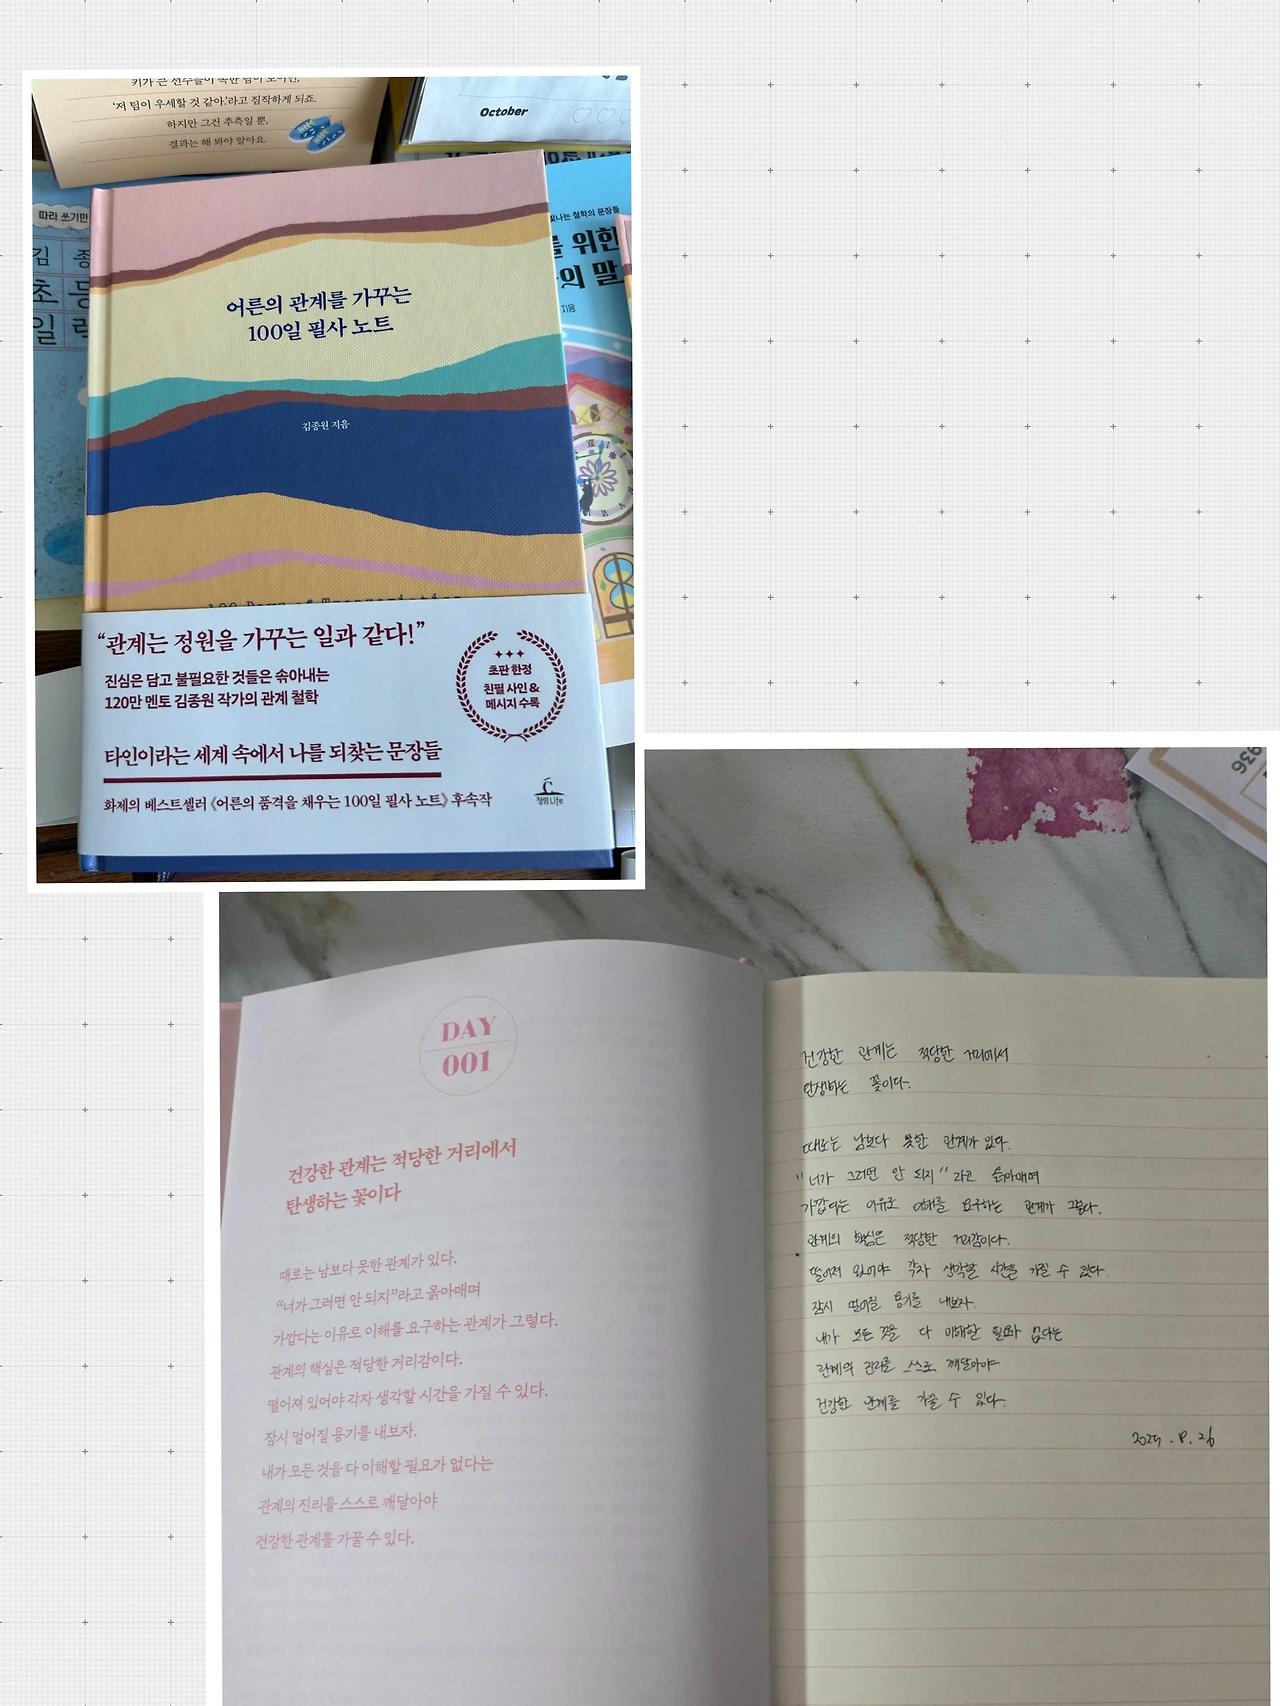 키가 큰 선수들이 속한 팀이 보이면,
‘저 팀이 우세할 것 같아.’라고 짐작하게 되죠.
하지만 그건 추측일 뿐,
결과는 해 봐야 알아요.
October
따라 쓰기만
김 종
초 등
일 력
빛나는 철학의 문장들
를 위한
의 말
지음
어른의 관계를 가꾸는
100일 필사 노트
김종원 지음
100 Days of Transcription
“관계는 정원을 가꾸는 일과 같다!”
진심은 담고 불필요한 것들은 솎아내는
120만 멘토 김종원 작가의 관계 철학
초판 한정
친필 사인 &
메시지 수록
타인이라는 세계 속에서 나를 되찾는 문장들
화제의 베스트셀러 《어른의 품격을 채우는 100일 필사 노트》 후속작
청림Life
936
DAY
001
건강한 관계는 적당한 거리에서
탄생하는 꽃이다
때로는 남보다 못한 관계가 있다.
“너가 그러면 안 되지”라고 옭아매며
가깝다는 이유로 이해를 요구하는 관계가 그렇다.
관계의 핵심은 적당한 거리감이다.
떨어져 있어야 각자 생각할 시간을 가질 수 있다.
잠시 멀어질 용기를 내보자.
내가 모든 것을 다 이해할 필요가 없다는
관계의 진리를 스스로 깨달아야
건강한 관계를 가꿀 수 있다.
건강한 관계는 적당한 거리에서
탄생하는 꽃이다.
때로는 남보다 못한 관계가 있다.
"너가 그러면 안 되지"라고 옭아매며
가깝다는 이유로 이해를 요구하는 관계가 그렇다.
관계의 핵심은 적당한 거리감이다.
떨어져 있어야 각자 생각할 시간을 가질 수 있다.
잠시 멀어질 용기를 내보자.
내가 모든 것을 다 이해할 필요가 없다는
관계의 진리를 스스로 깨달아야
건강한 관계를 가꿀 수 있다.
2025. 8. 26